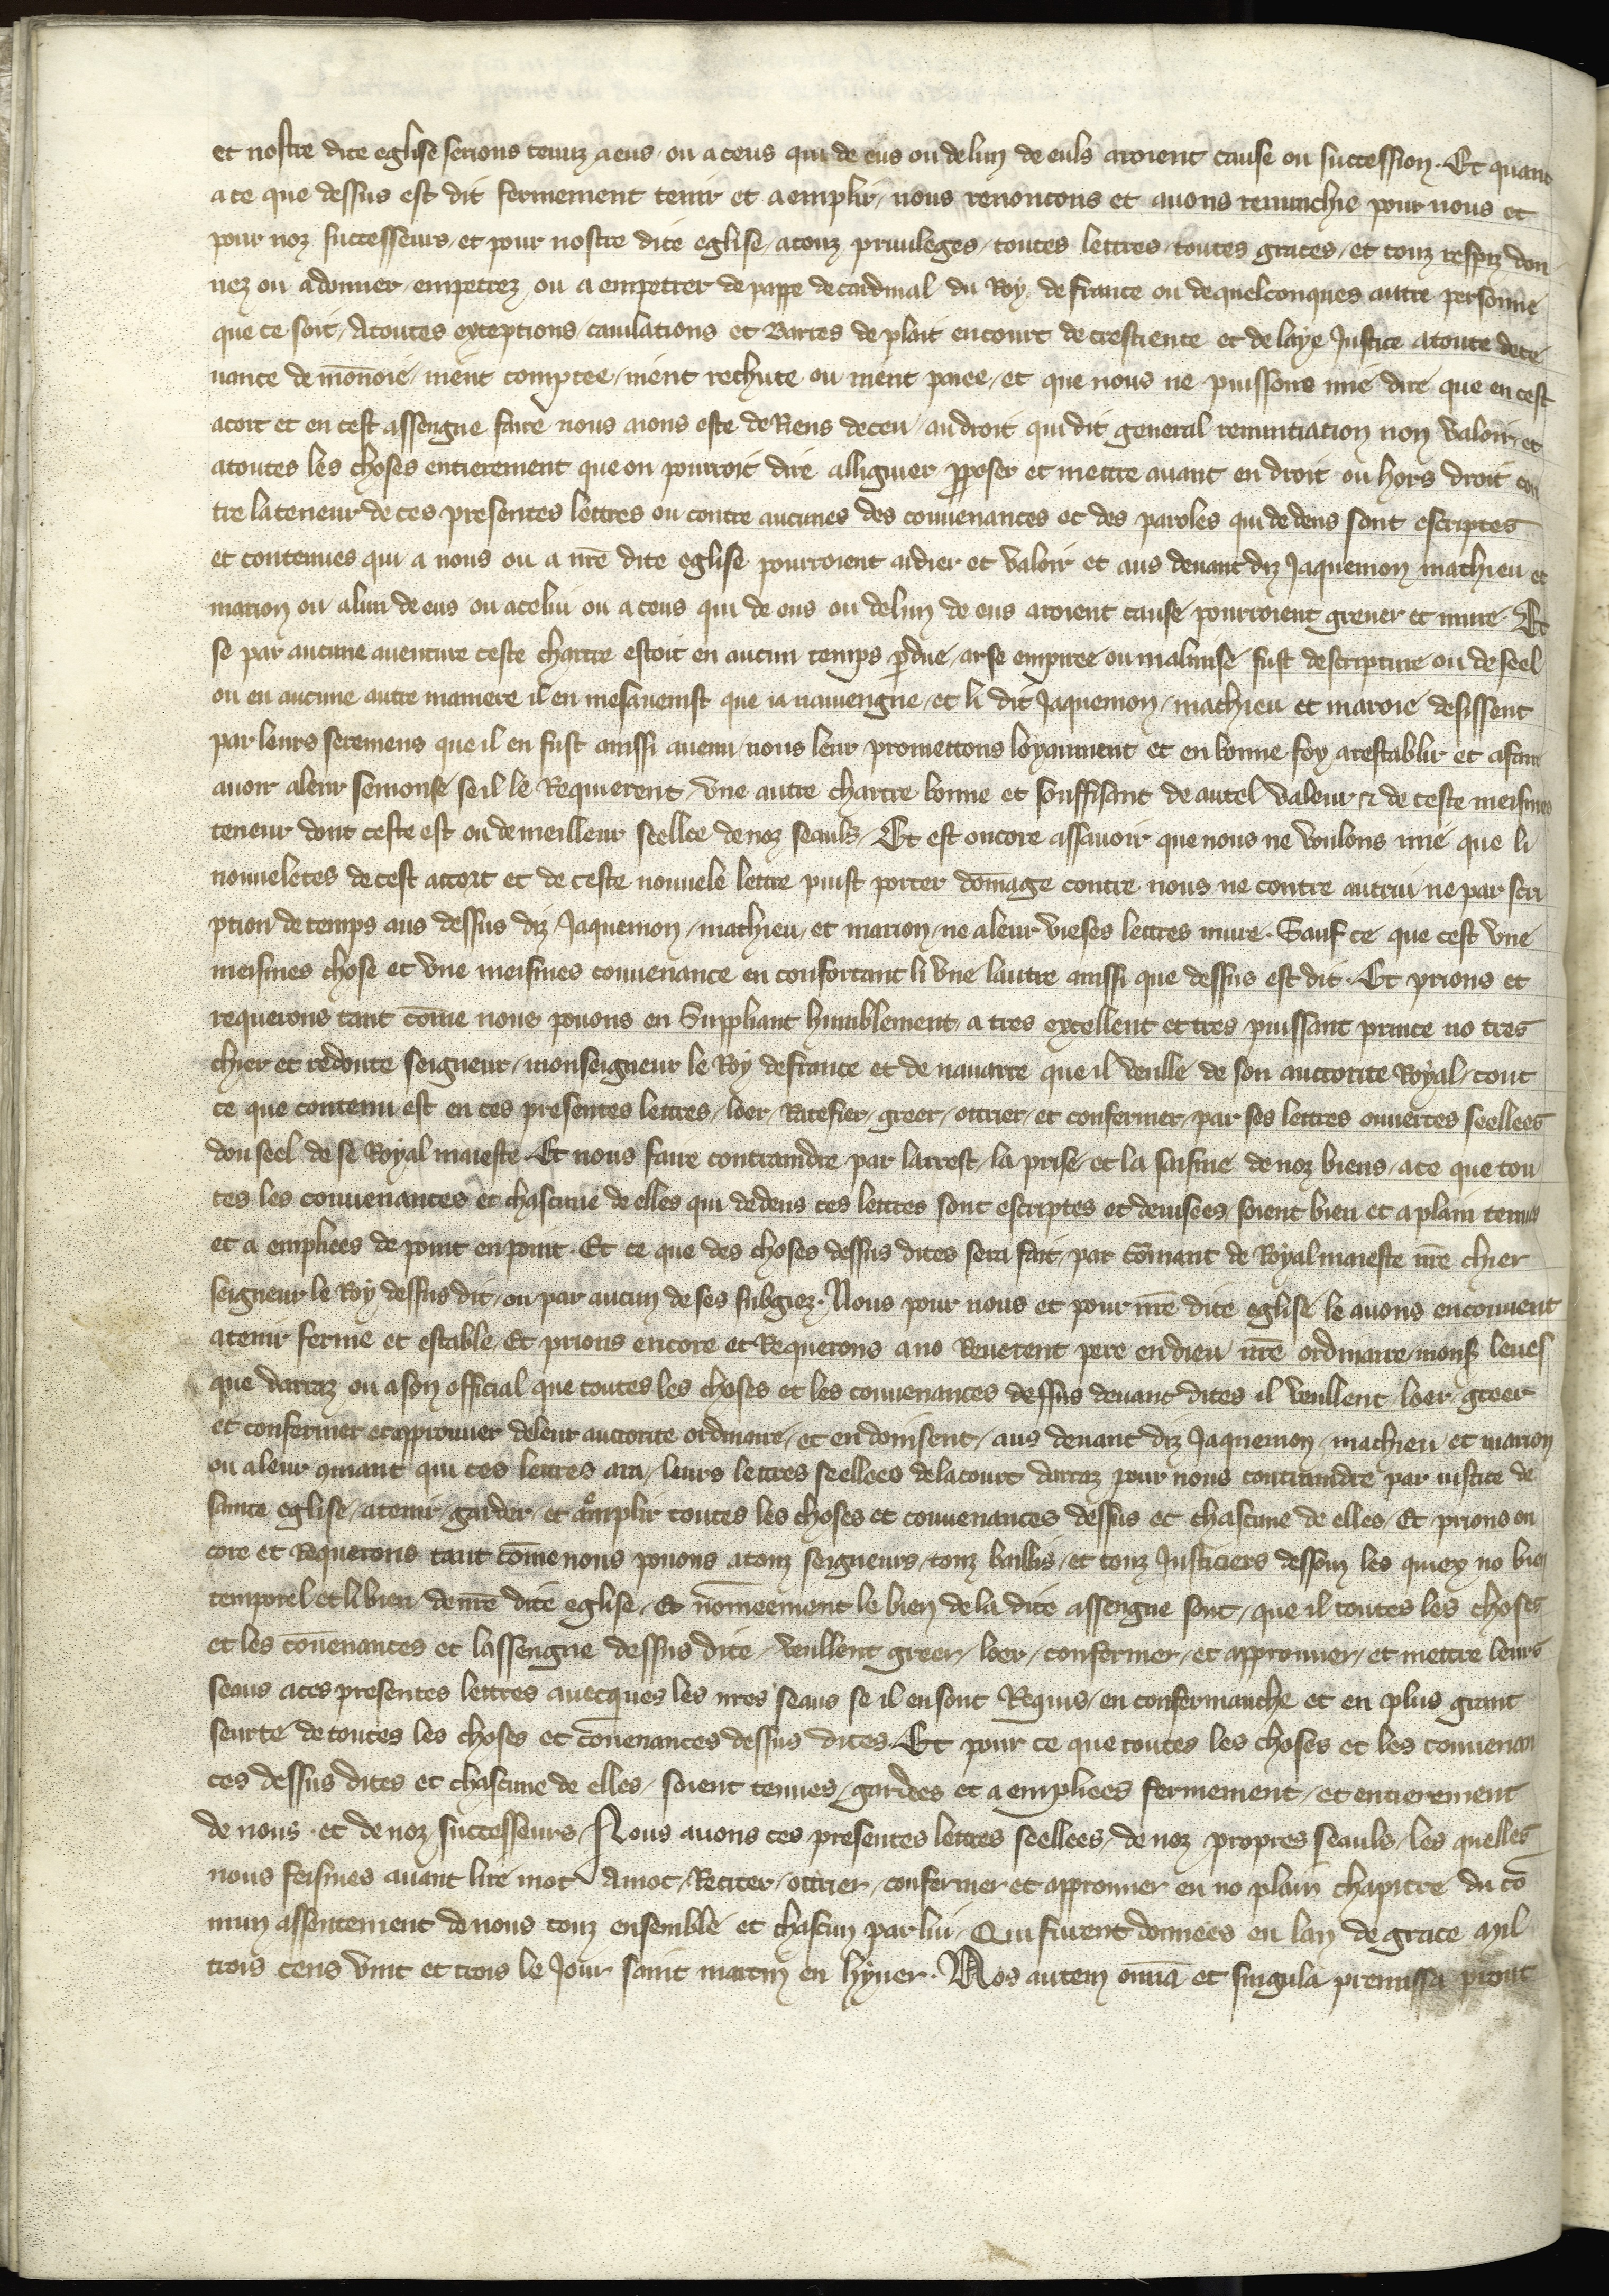 et nostre dite eglise serions tenuz a eus ou a ceus qui de eus ou de lun de euls aroient cause ou succession. Et quant
a ce que dessus est dit fermement tenir et a emplir, nous renoncons et auons renunchie pour nous et
pour noz successeurs, et pour nostre dite eglise, a touz priuileges, toutes lettres, toutes graces, et touz respiz don
nez ou a donner, empetrez, ou a empetrer de pappe de cardinal du Roy de france ou de quelconques autre personne
que ce soit, A toutes exceptions, cauilations et Bartes de plait en court de crestiente et de laye Justice a toute dece
uance de mōnoie, nient comptee, nient rechute ou nient paiee, et que nous ne puissons mie dire que en cest
acort et en cest assengne faire nous aions este de Riens deceu, au droit qui dit general renunciacion non valoir, et
a toutes les choses entierement que on pourroit dire alliguier pposer et mettre auant en droit ou hors droit con
tre la teneur de ces presentes lettres ou contre aucunes des conuenances et des paroles qui dedens sont escriptes
et contenues qui a nous ou a nre dite eglise pourroient aidier et valoir et aus deuant diz Jaquemon mathieu et
marion ou a lun de eus ou a celui ou a ceus qui de eus ou de lun de eus aroient cause pourroient greuer et nuire. Et
se par aucune auenture ceste chartre estoit en aucun temps pdue, arse empiree ou malmise fust descripture ou de seel
ou en aucune autre maniere il en mesauenist que ia nauiengne, et li dit Jaquemon, mathieu et maroie desissent
par leurs seremens que il en fust aussi auenu, nous leur promettons loyaument et en bonne foy a restablir et a faire
auoir a leur semonse se il le Requierent, vne autre chartre bonne et souffisant de autel valeur et de ceste meismes
teneur dont ceste est ou de meilleur seellee de noz seauls, Et est encore assauoir que nous ne voulons mie que li
nouueletes de cest accort et de ceste nouuele lettre puist porter dōmage contre nous ne contre autrui ne par scri
ption de temps aus dessus diz Jaquemon, mathieu, et marion, ne a leur vieses lettres nuire. Sauf ce que cest vne
meismes chose et vne meismes conuenance en confortant li vne lautre aussi que dessus est dit. Et prions et
requerons tant cōme nous pouons en Suppliant humblement, a tres excellent et tres puissant prince no tres
chier et redoute seigneur, monseigneur le Roy de france et de nauarre que il veulle de son auctorite Royal, tout
ce que contenu est en ces presentes lettres, loer, Ratefier, greer, ottrier, et confermer, par ses lettres ouuertes seellees
dou seel de se Royal maieste, Et nous faire contraindre par larrest, la prise et la saisine de noz biens, a ce que tou
tes les conuenances et chascune de elles qui dedens ces lettres sont escriptes et deuisees, soient bien et a plain tenues
et a empliees de point en point. Et ce que des choses dessus dites sera fait, par cōmant de Royal maieste nre chier
seigneur le Roy dessus dit, ou par aucun de ses subgiez. Nous pour nous et pour nre dite eglise le auons enconuent
a tenir ferme et estable, Et prions encore et Requerons a no Reuerent pere en dieu nre ordinaire, mons leues
que darraz ou a son official que toutes les choses et les conuenances dessus deuant dites il veullent, loer, greer
et confermer et approuuer de leur auctorite ordinaire, et en doinsent, aus deuant diz Jaquemon, mathieu et marion
ou a leur qmant qui ces lettres ara, leurs lettres seellees de la court darraz pour nous contraindre par iustice de
sainte eglise, a tenir, garder, et aemplir toutes les choses et conuenances dessus et chascune de elles, Et prions en
core et Requerons tant cōme nous pouons a touz seigneurs, touz baillis, et touz Justiciers dessouz les quiex no bien
temporel et li bien de nre dite eglise, Et nōmeement le bien de la dite assengne sont, que il toutes les choses
et les cōuenances et lassengne dessus dite, veullent greer, loer, confermer, et approuuer, et mettre leurs
seaus a ces presentes lettres auecques les nres seaus se il en sont Requis, en confermanche et en plus grant
seurte de toutes les choses et cōuenances dessus dites. Et pour ce que toutes les choses et les conuenan
ces dessus dites et chascune de elles, soient tenues, gardees et a empliees fermement, et entierement
de nous. et de noz successeurs, Nous auons ces presentes lettres seellees, de noz propres seauls, les quelles
nous feismes auant lire mot a mot, Reciter, ottrier, confermer et approuuer en no plain chapitre du cō
mun assentement de nous touz ensemble et chascun par lui, Qui furent donnees en lan de grace mil
trois cens vint et trois le Jour saint martin en hyuer. Nos autem omnia et singula premissa prout